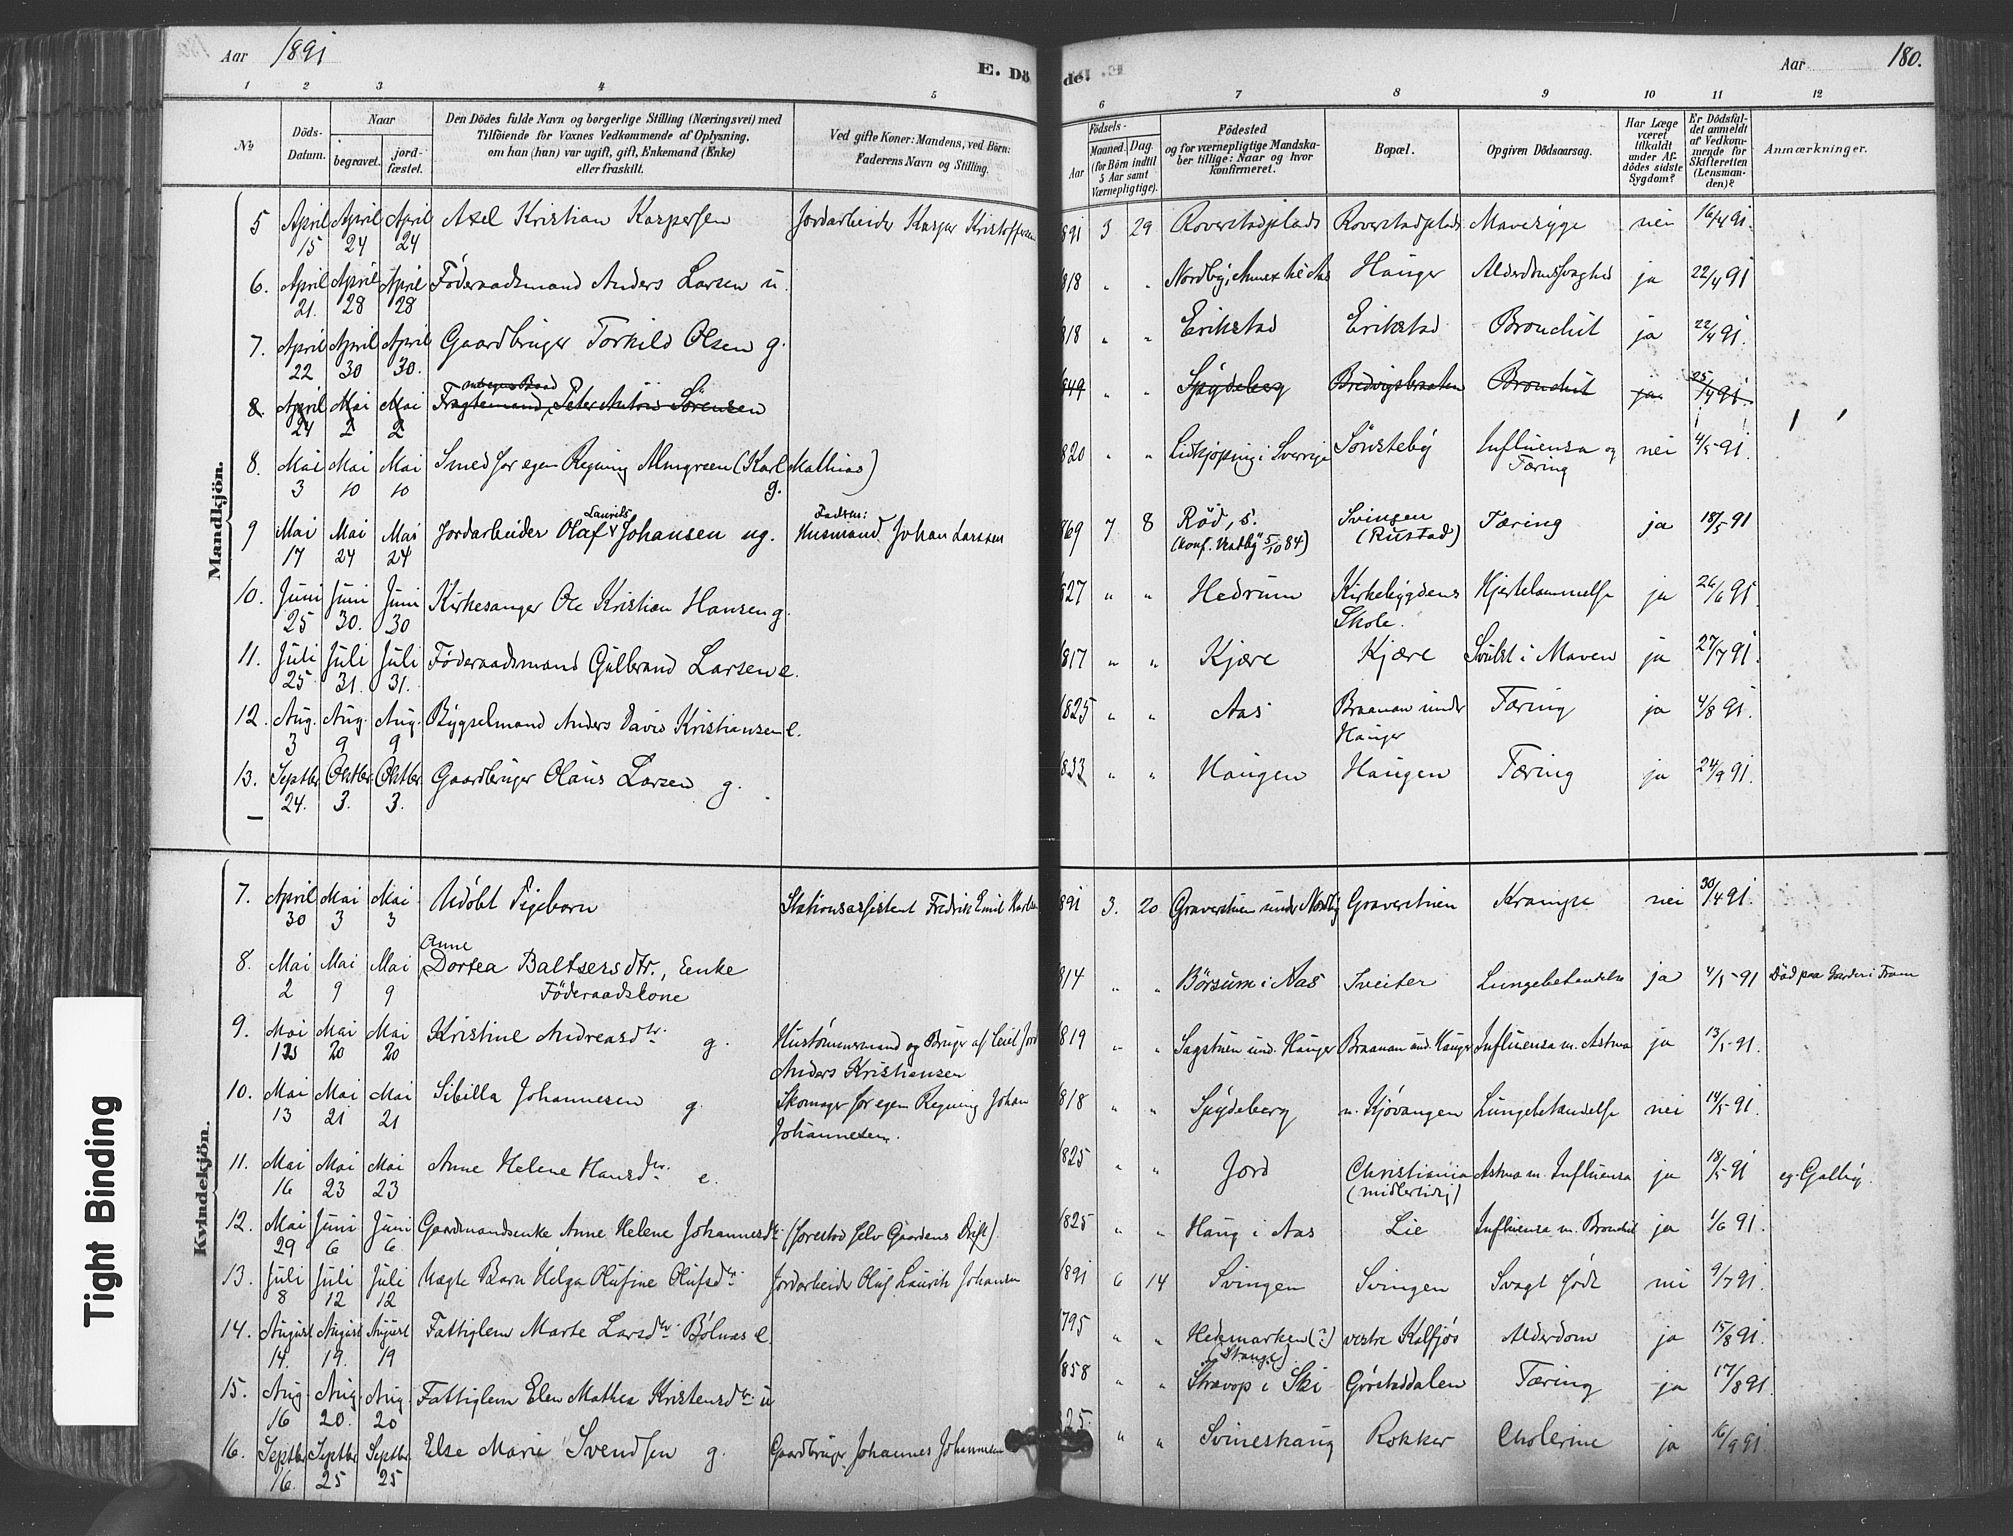 Aar 1891
E. Dö
de!
Aar
180.
1 2 3 4 5 6 7 8 9 10 11 12
No
Döds-Datum.
Naar
begravet.
jord-fæstet.
Den Dödes fulde Navn og borgerlige Stilling (Næringsvei) med
Tilföiende for Voxnes Vedkommende af Oplysning,
om han (hun) var ugift, gift, Enkemand (Enke)
eller fraskilt.
Ved gifte Koner: Mandens, ved Börn:
Faderens Navn og Stilling.
Födsels-
Aar
Maaned.
Dag.
(for Börn indtil
5 Aar samt
Værnepligtige).
Födested
og for værnepligtige Mandska-
ber tillige: Naar og hvor
konfirmeret.
Bopæl.
Opgiven Dödsaarsag.
Har Læge
været
tilkaldt
under Af-
dödes sidste
Sygdom?
Er Dödsfal-
det anmeldt
af Vedkom-
mende for
Skifteretten
(Lensman-
den)?
Anmærkninger.
Mandkjön.
5 April 15 April 24 April 24 Axel Kristian Kaspersen Jordarbeider Kaspar Kristoffersen 891 3 29 Roverstadplads Roverstadplads Mavesyge nei 16/4 91.
6. April 21. April 28 April 28 Föderaadsmand Anders Larsen u. 818 " " Nordby, Annex til Aas Hauger Alderdomssvaghed ja 22/4 91
7. April 22 April 30 April 30. Gaardbruger Torkild Olsen g. 818 " " Erikstad Erikstad Bronchit ja 22/4 91.
8. April 24 Mai 2 Mai 2 Fragtemand, Peter Anton Sörensen 849 Spydeberg Bredvigsbraaten Bronchit ja 25/4 91.
8. Mai 3 Mai 10 Mai 10 Smed for egen Regning Almgreen (Karl Mathias) g. 820 " " Lidkjöping i Sverige Sönsteby Influensa og Tæring nei 4/5 91.
9 Mai 17 Mai 24 Mai 24 Jordarbeider Olaf Laurits Johansen ug. Faderen: Husmand Johan Larsen 869 7 8 Röd, S. (konf. Vestby 5/10 84) Svingen (Rustad) Tæring ja 18/5 91
10. Juni 25 Juni 30. Juni 30 Kirkesanger Ole Kristian Hansen g. 827 " " Hedrum Kirkebygdens Skole. Hjertelammelse ja 26/6 91.
11. Juli 25 Juli 31. Juli 31. Föderaadsmand Gulbrand Larsen e. 817 " " Kjære Kjære Svulst i Maven ja 27/7 91.
12. Aug. 3 Aug. 9 Aug. 9 Bygselmand Anders David Kristiansen e. 1825 " " Aas Braanan under Hauger Tæring ja 4/8 91.
13. Septbr 24. Oktbr 3. Oktbr 3. Gaardbruger Olaus Larsen g. 833 " " Haugen Haugen Tæring ja 24/9 91.
Kvindekjön.
7. April 30 Mai 3 Mai 3 Udöbt Pigebarn Stationsassistent Fredrik Emil 891 3. 20 Graverstuen under Nordby Graverstuen Krampe nei 30/4 91.
8. Mai 2 Mai 9 Mai 9 Anne Dortea Baltsersdtr., Enke Föderaadskone 814 " " Börsum i Aas Sveiter Lungebetændelse ja 4/5 91 Död paa Garder i Fraun
9. Mai 13 Mai 20 Mai 20 Kristine Andreasdtr. g. Hustömmermand og Bruger af leiet Jord Anders Kristiansen 819 " " Sagstuen und. Hauger Braanan und. Hauger Influensa m. Astma ja 13/5 91.
10. Mai 13 Mai 21 Mai 21 Sibilla Johannesen g. Skomager for egen Regning Johan Johannesen. 818 " " Spydeberg n. Kjövangen Lungebetændelse nei 14/5 91.
11. Mai 16 Mai 23 Mai 23 Anne Helene Hansdtr. e. 1825 " " Jord Christiania (midlertidig) Astma m. Influensa ja 18/5 91 eg. Galby.
12. Mai 29 Juni 6 Juni 6 Gaardmandsenke Anne Helene Johannesdtr. (forestod selv Gaardens Drift). 1825 " " Haug i Aas Lie Influensa m. Bronchit ja 1/6 91.
13. Juli 8 Juli 12 Juli 12 Uægte Barn Helga Olufine Olufsdtr. Jordarbeider Oluf Laurits Johansen 1891 6 14 Svingen Svingen Svagt född nei 9/7 91.
14. August 14. August 19. August 19 Fattiglem Marte Larsdtr. Bölnas e. 1795 " " Hedemarken (?) (Stange) vestre Kalfjös Alderdom ja 15/8 91.
15. Aug. 16 Aug. 20. Aug. 20 Fattiglem Elen Mathea Kristensdtr. u 1858 " " Stavop i Ski Görstaddalen Tæring ja 17/8 91.
16. Septbr 16. Septbr 25 Septbr 25 Else Marie Svendsen g. Gaardbruger Johannes Johannesen 825. " " Svineskaug Rokker Cholerine ja 16/9 91.
Tight Binding